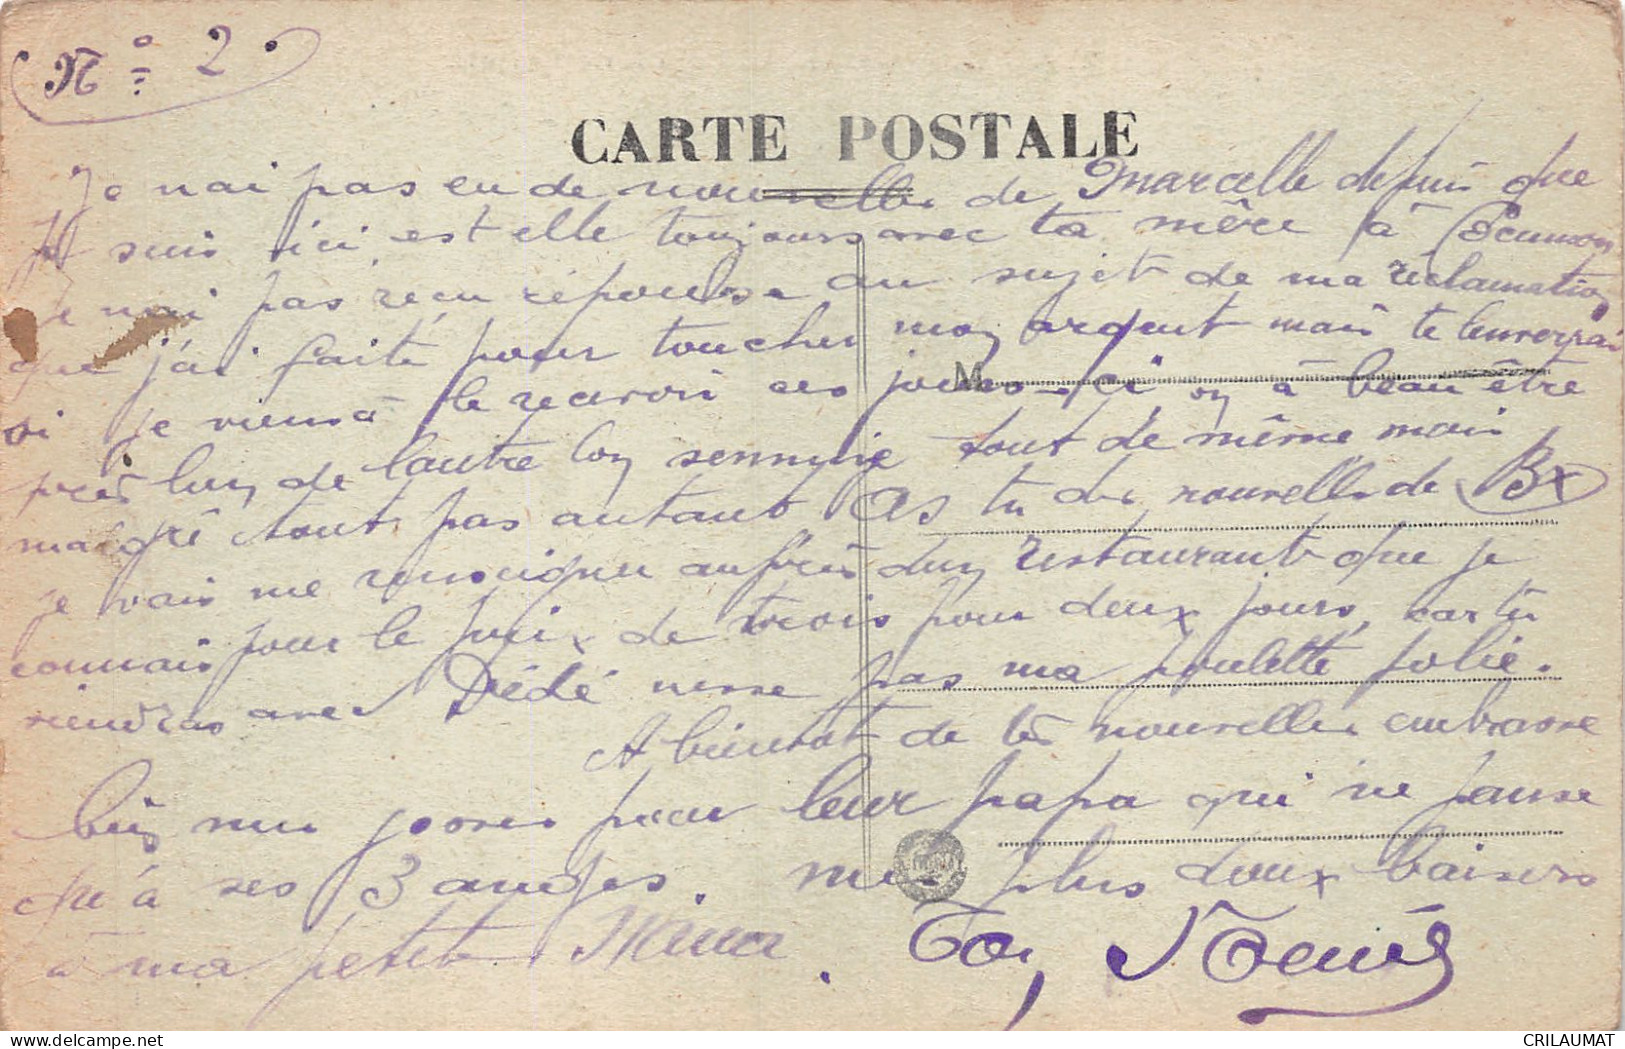 N° 2
CARTE POSTALE
Je nai pas eu de nouvelles de Marcelle depuis que
Je suis ici est elle toujours avec ta mère à
Je nai pas reçu réponse au sujet de ma réclamation
que j'ai faite pour toucher mon argent mais te lenverrai
M
si je viens à le recevoir ces jours-ci on à beau être
près lun de lautre lon sennuie tout de même mais
malgré tout pas autant As tu des nouvelles de Bx
je vais me renseigner auprès dun restaurant que je
connais pour le prix de trois pour deux jours, car tu
viendras avec Dédé nesse pas ma poulette jolie.
A bientot de tes nouvelles embrasse
bien mes gosses pour leur papa qui ne panse
qu'à ses 3 anges. mes plus doux baisers
à ma petite Mimie. Ton René
CRILAUMAT